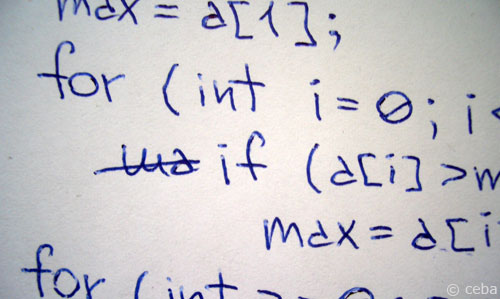 max = a[1];
for (int i=0; i<
if (a[i]>m
max = a[i
for (int
© ceba